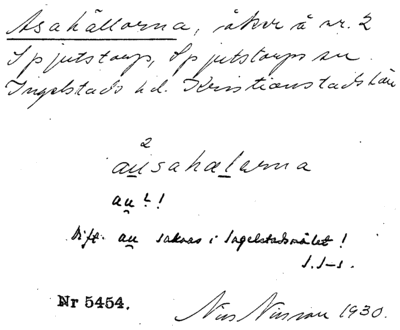 Asahällorna, åker å nr. 2
Spjutstorp, Spjutstorps sn
Ingelstads hd. Kristianstads län
2
au̲sahal̲arna
au̲ L!
Dift. au̲ saknas i Ingelstadsmålet!
I. I-n.
Nr 5454. Nils Nilsson 1930.